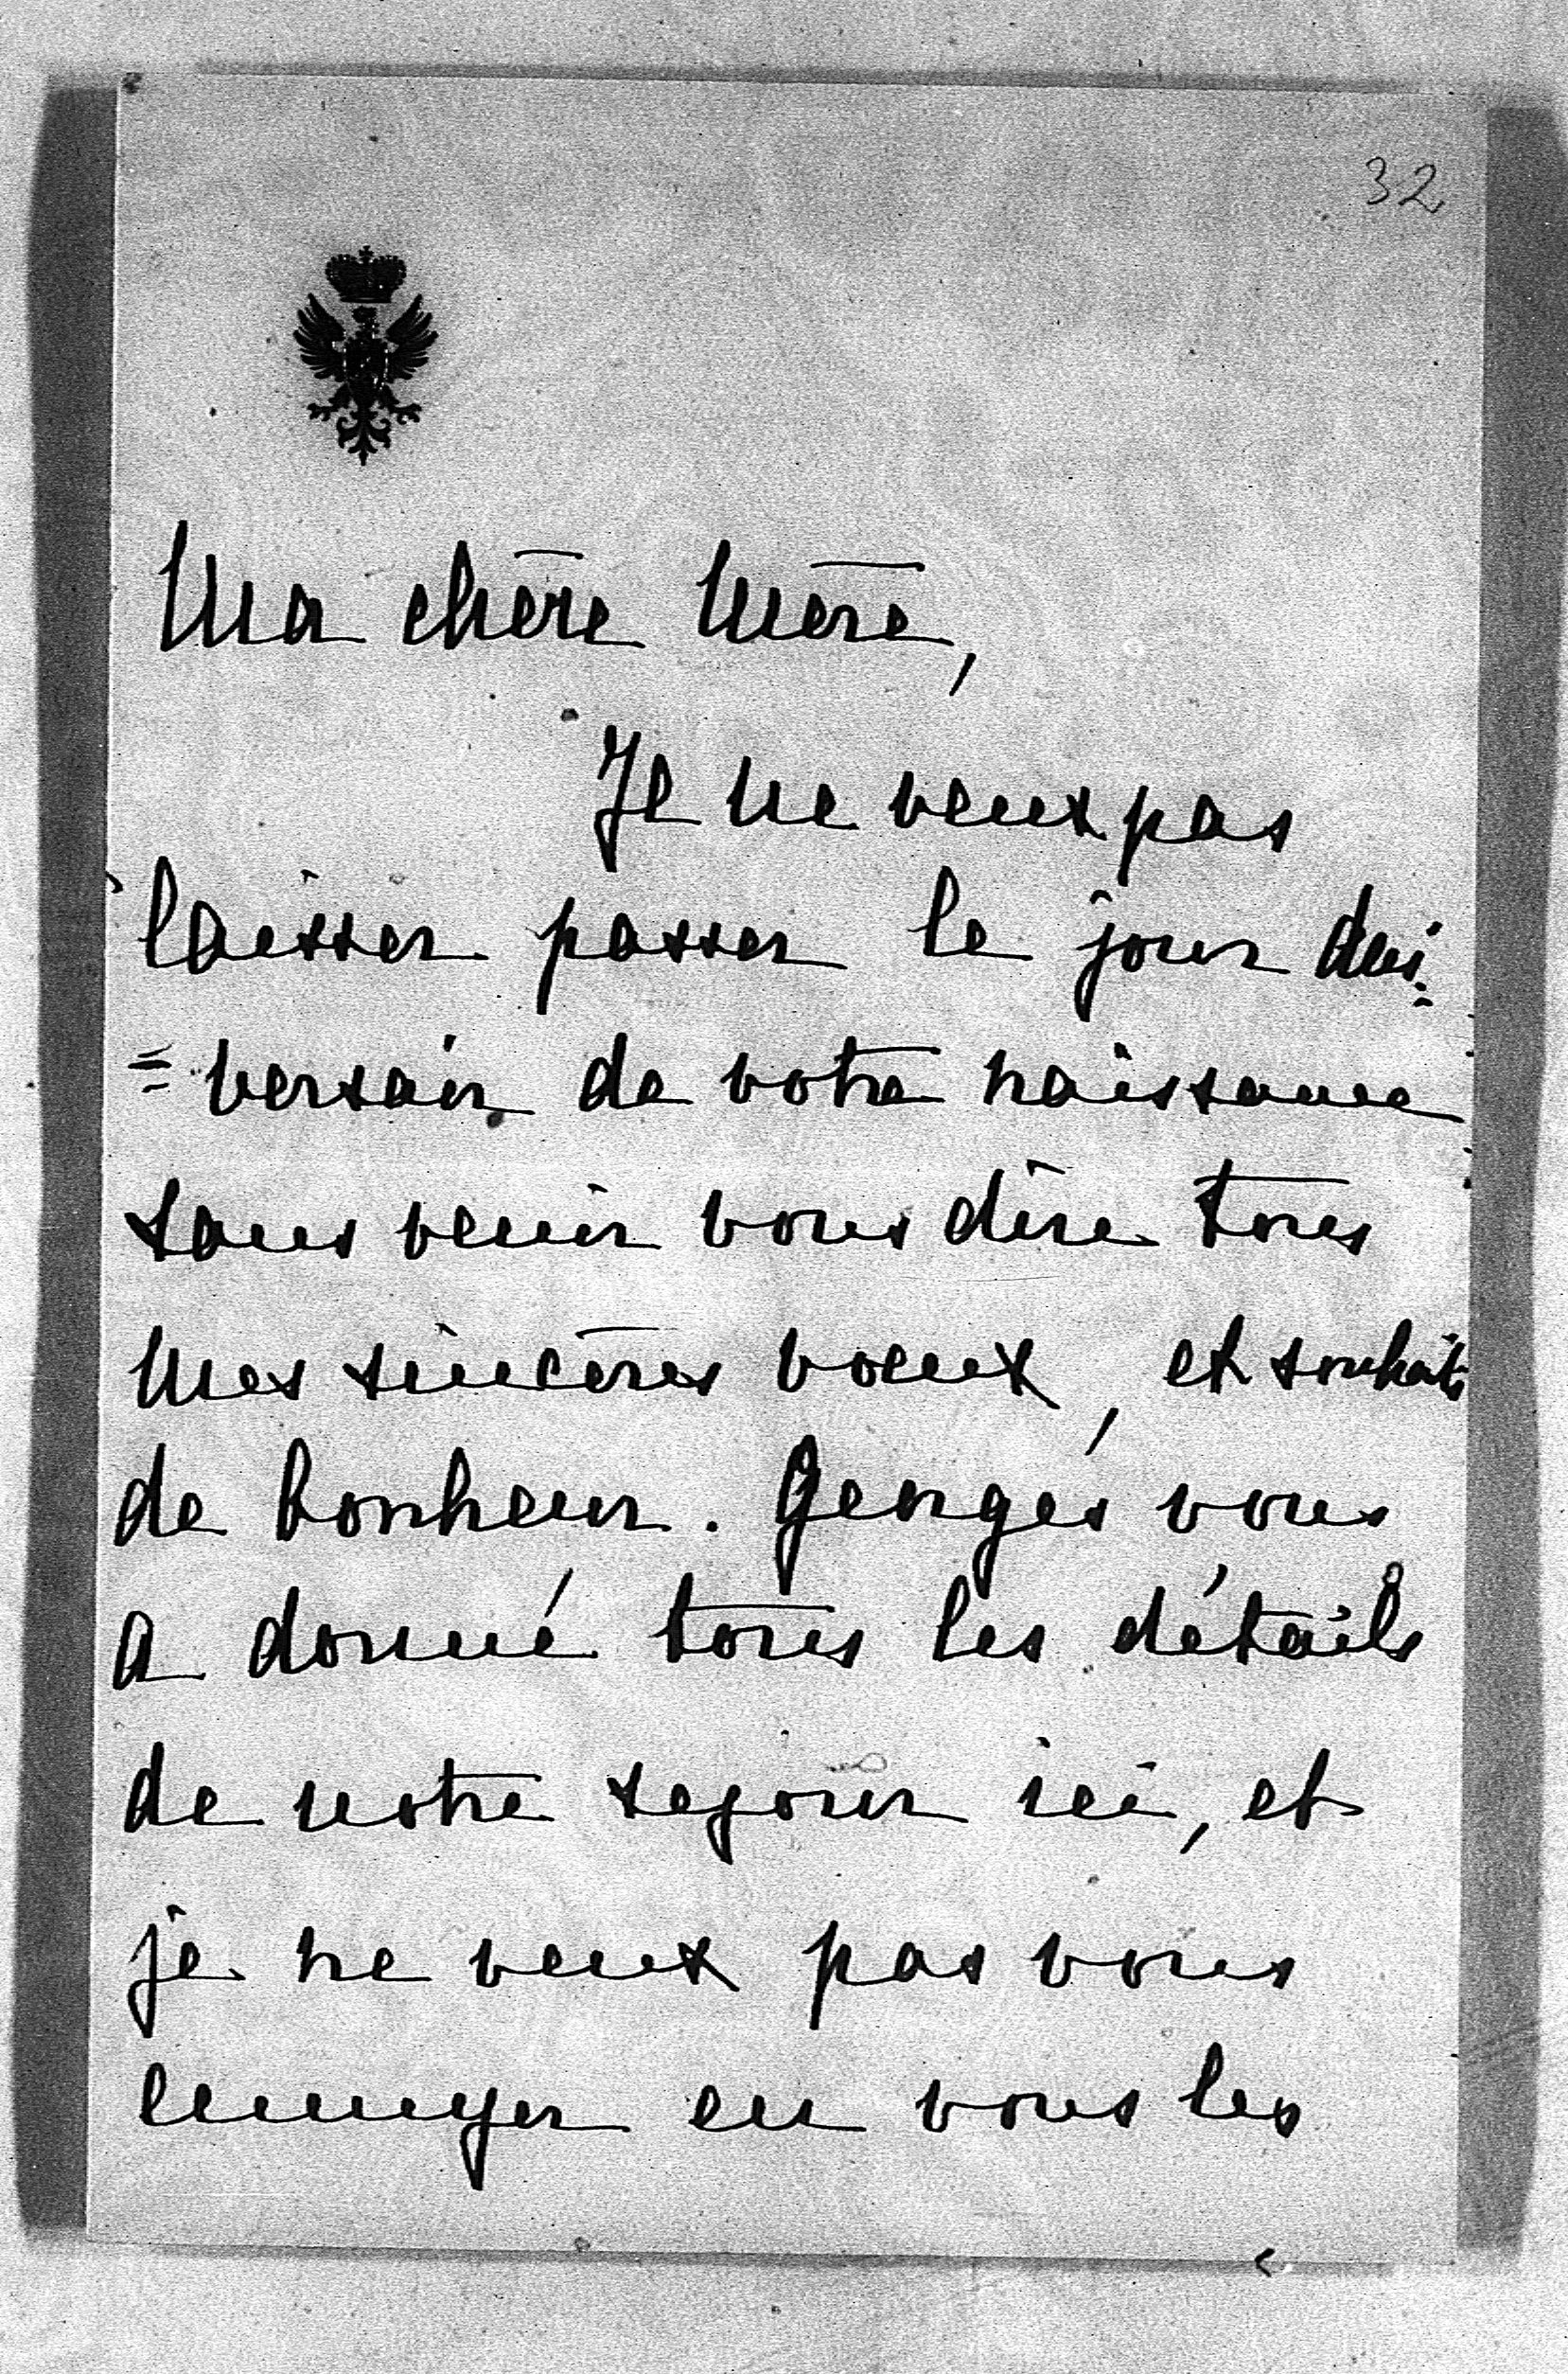 32
Ma chère Mère,
Je ne veux pas
laisser passer le jour
= versair de votre naissance
sans venir vous dire tous
mes sincères voeux, et souhaits
de bonheur. Georges vous
a donné tous les détails
de notre sejour ici, et
je ne veux pas vous
ennuyer en vous les